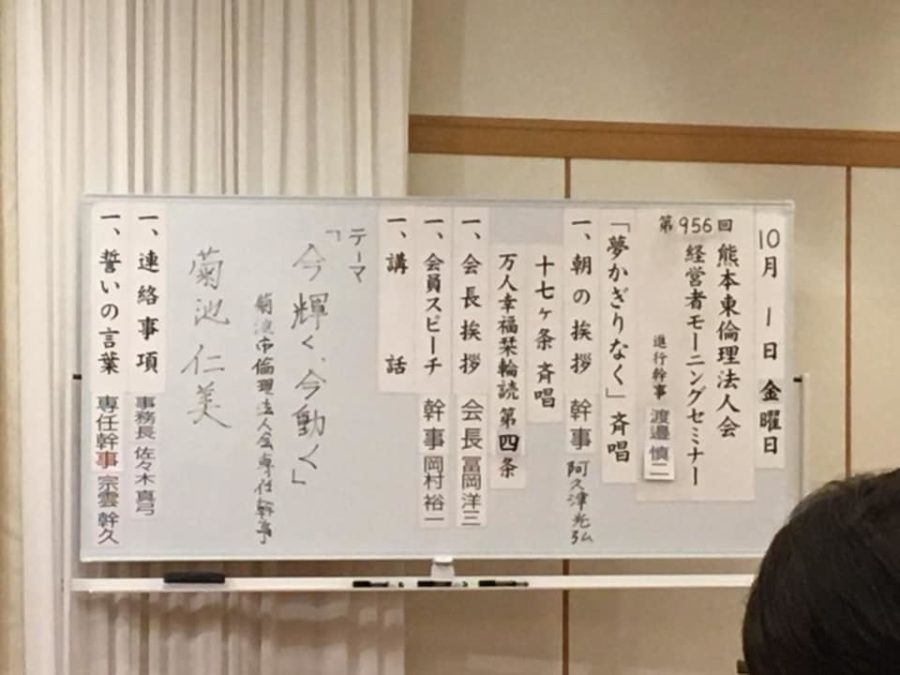 10月1日金曜日
第956回
熊本東倫理法人会
経営者モーニングセミナー
進行幹事 渡邉慎二
「夢かぎりなく」斉唱
一、朝の挨拶 幹事 阿久津光弘
十七ヶ条 斉唱
万人幸福栞輪読 第四条
一、会長挨拶 会長 冨岡洋三
一、会員スピーチ 幹事 岡村裕一
一、講話
テーマ
「今輝く、今動く」
菊池市倫理法人会専任幹事
菊池仁美
一、連絡事項 事務長 佐々木真弓
一、誓いの言葉 専任幹事 宗雲幹久